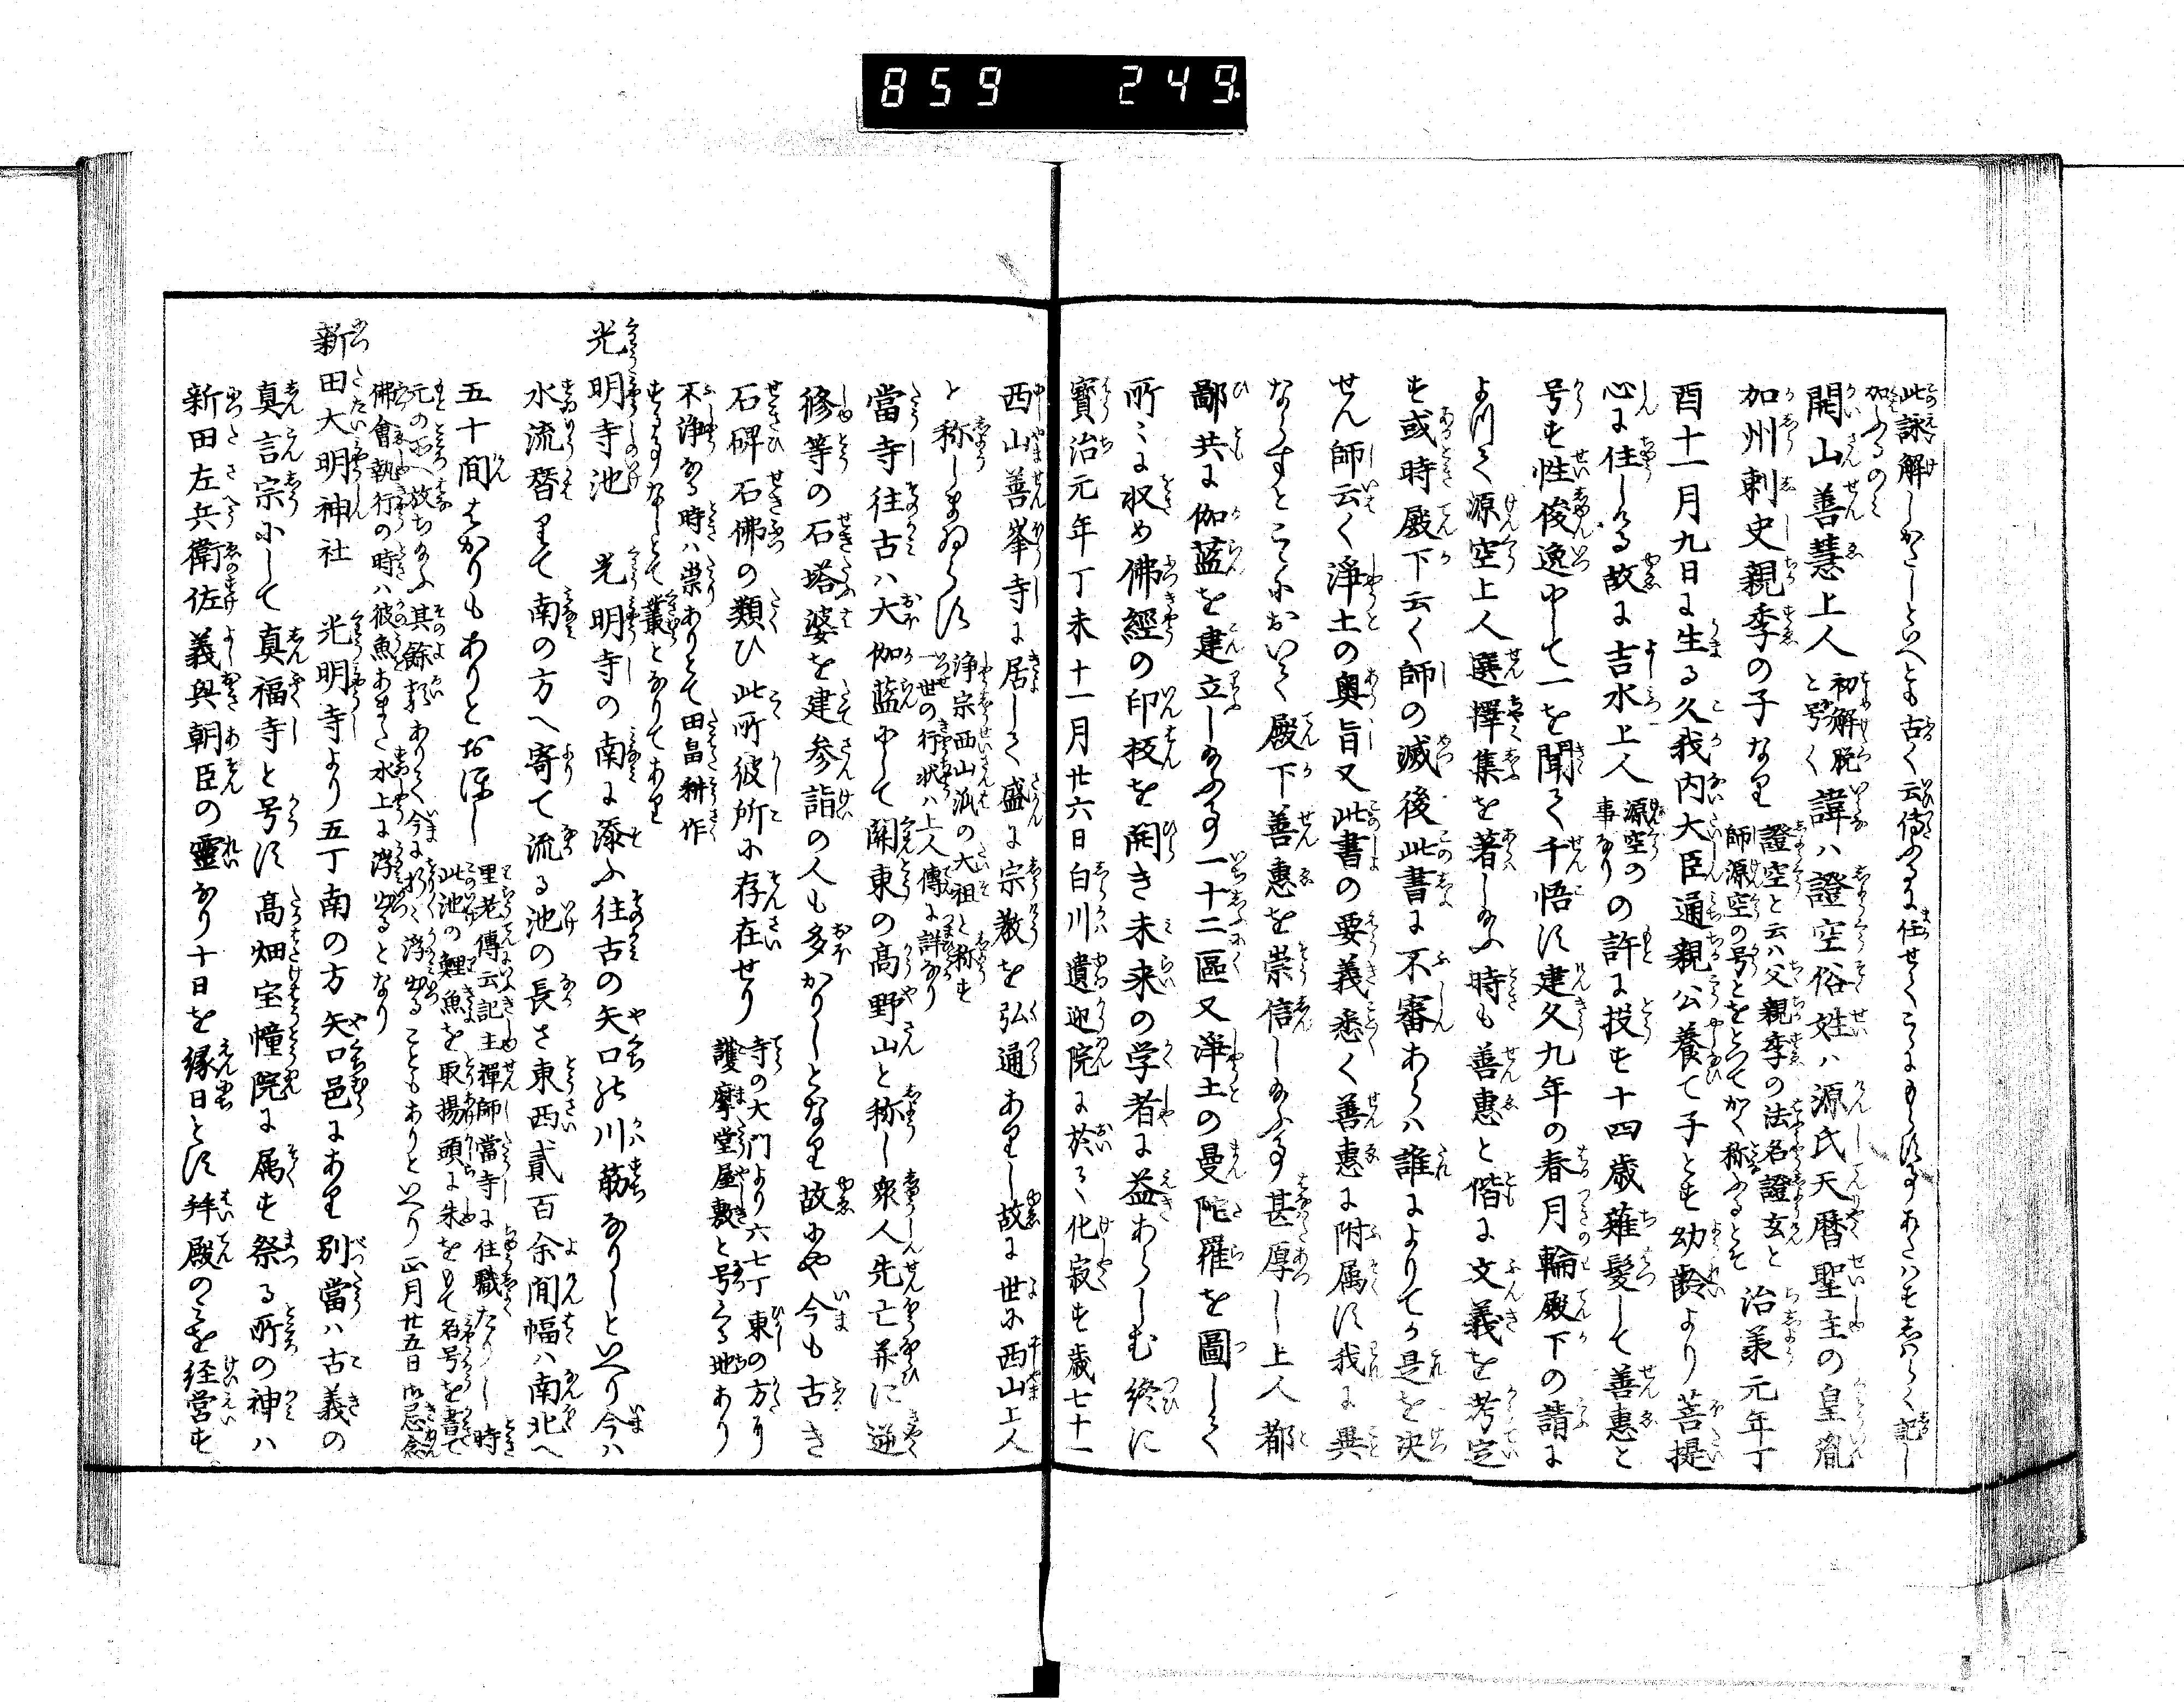 859 249
此詠解しかたしといへとも古く云伝ふるに任せてこゝにもらさす
加ふるのみ
開山善慧上人初解脱と号く諱ハ證空俗姓ハ源氏天暦聖主の皇胤
加州刺史親季の子なり證空と云ハ父親季の法名證玄と師源空の号とをとつてかく称ふるとそ治承元年丁
酉十一月九日に生る久我内大臣通親公養て子とす幼齢より菩提
心に住しる故に吉水上人源空の事なりの許に投す十四歳薙髪して善惠と
号す性俊逸にして一を聞て千悟す建久九年の春月輪殿下の請に
よりて源空上人選擇集を著し給ふ時も善惠と偕に文義を考定
す或時殿下云く師の滅後此書に不審あらハ誰によりてか是を決
せん師云く浄土の奥旨又此書の要義悉く善惠に附属す我に異
ならすとこゝにおいて殿下善惠を崇信し給ふ事甚厚し上人都
鄙共に伽藍を建立し給ふ事一十二區又浄土の曼陀羅を圖して
所々に収め佛經の印板を開き未来の学者に益あらしむ終に
寳治元年丁未十一月廿六日白川遺迎院に於て化寂す歳七十一
西山善峯寺に居して盛に宗教を弘通ありし故に世に西山上人
と称しまゐらす浄宗西山派の大祖と称す一世の行状ハ上人傳に詳なり
當寺往古ハ大伽藍にして関東の高野山と称し衆人先亡并に逆
修等の石塔婆を建参詣の人も多かりしとなり故にや今も古き
石碑石佛の類ひ此所彼所に存在せり寺の大門より六七丁東の方に護摩堂屋敷と号る地あり
不浄なる時ハ祟ありとて田畠耕作
する事なしとて叢となりてあり
光明寺池 光明寺の南に添ふ往古の矢口の川筋なりしといへり今ハ
水流替りて南の方へ寄て流る池の長さ東西貳百余間幅ハ南北へ
五十間はかりもありとおほし里老傳云記主禅師當寺に住職たりし時此池の鯉魚を取揚頭に朱をもて名号を書て
元の所へ放ち給ふ其餘類ありて今に折々浮出ることもありといへり正月廿五日御忌念
佛會執行の時ハ彼魚あまた水上に浮出るとなり
新田大明神社 光明寺より五丁南の方矢口邑にあり別當ハ古義の
真言宗にして真福寺と号す高畑宝幢院に属す祭る所の神ハ
新田左兵衛佐義興朝臣の靈なり十日を縁日とす拜殿のみを経営す